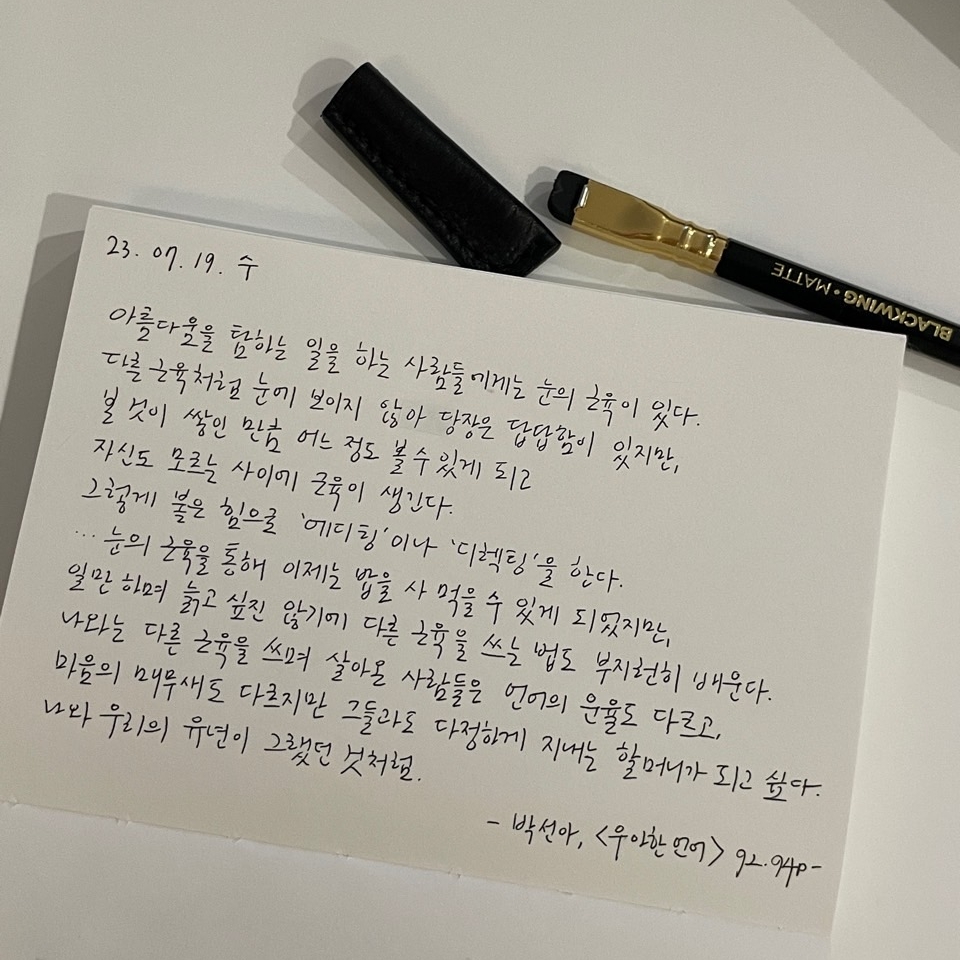 23. 07. 19. 수
아름다움을 탐하는 일을 하는 사람들에게는 눈의 근육이 있다.
다른 근육처럼 눈에 보이지 않아 당장은 답답함이 있지만,
볼 것이 쌓인 만큼 어느 정도 볼 수 있게 되고
자신도 모르는 사이에 근육이 생긴다.
그렇게 붙은 힘으로 '에디팅'이나 '디렉팅'을 한다.
… 눈의 근육을 통해 이제는 밥을 사 먹을 수 있게 되었지만,
일만 하며 늙고 싶진 않기에 다른 근육을 쓰는 법도 부지런히 배운다.
나와는 다른 근육을 쓰며 살아온 사람들은 언어의 운율도 다르고,
마음의 매무새도 다르지만 그들과도 다정하게 지내는 할머니가 되고 싶다.
나와 우리의 유년이 그랬던 것처럼.
- 박선아, <우아한 언어> 92.94p-
BLACKWING • MATTE